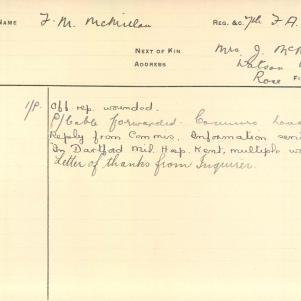 NAME J. M. McMillan REG. &C. 7th F.A.
NEXT OF KIN Mrs J. McM
ADDRESS Watson
Rose
1/P. Off rep. wounded.
P/Cable forwarded. Commrs Lon
Reply from Comms. Information
In Dartford Mil. Hosp. Kent, multiple w
Letter of thanks from Inquirer.